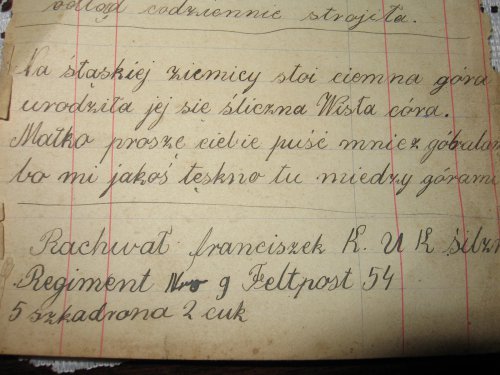 odtąd codziennie stroiła.
Na śtąskiej ziemicy stoi ciemna góra
urodziła jej się śliczna Wisła córa.
Matko proszę ciebie puść mniez
bo mi jakoś tęskno tu miedzy górami
Rachwał franciszek K. U K
Regiment Nro 9 Feltpost 54
5 szkadrona 2 cuk